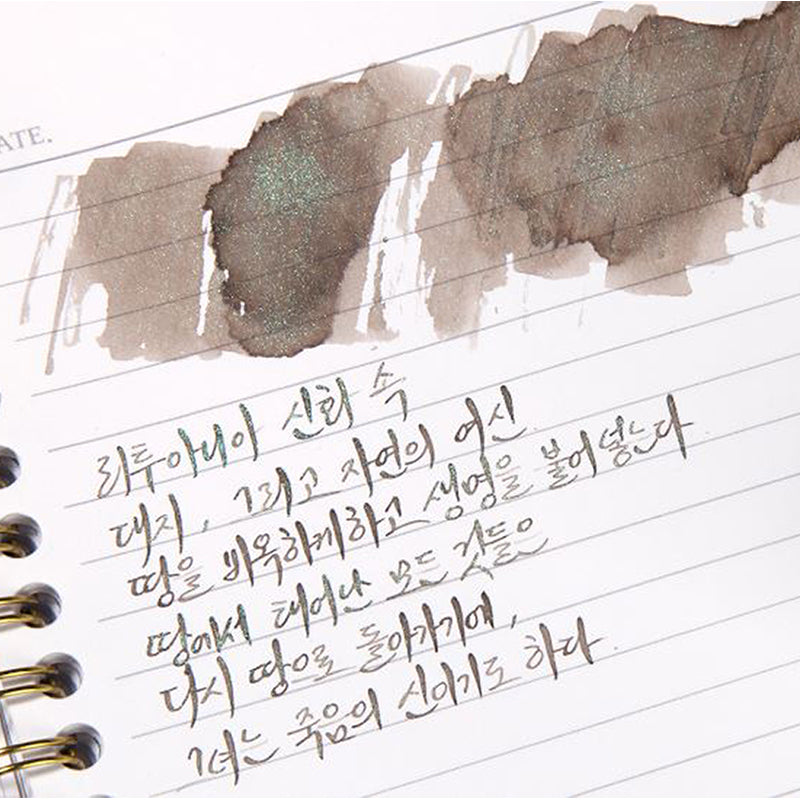 ATE.
리투아니아 신화 속
대지, 그리고 자연의 여신.
땅을 비옥하게하고 생명을 불어넣는다.
땅에서 태어난 모든 것들은
다시 땅으로 돌아가기에,
그녀는 죽음의 신이기도 하다.